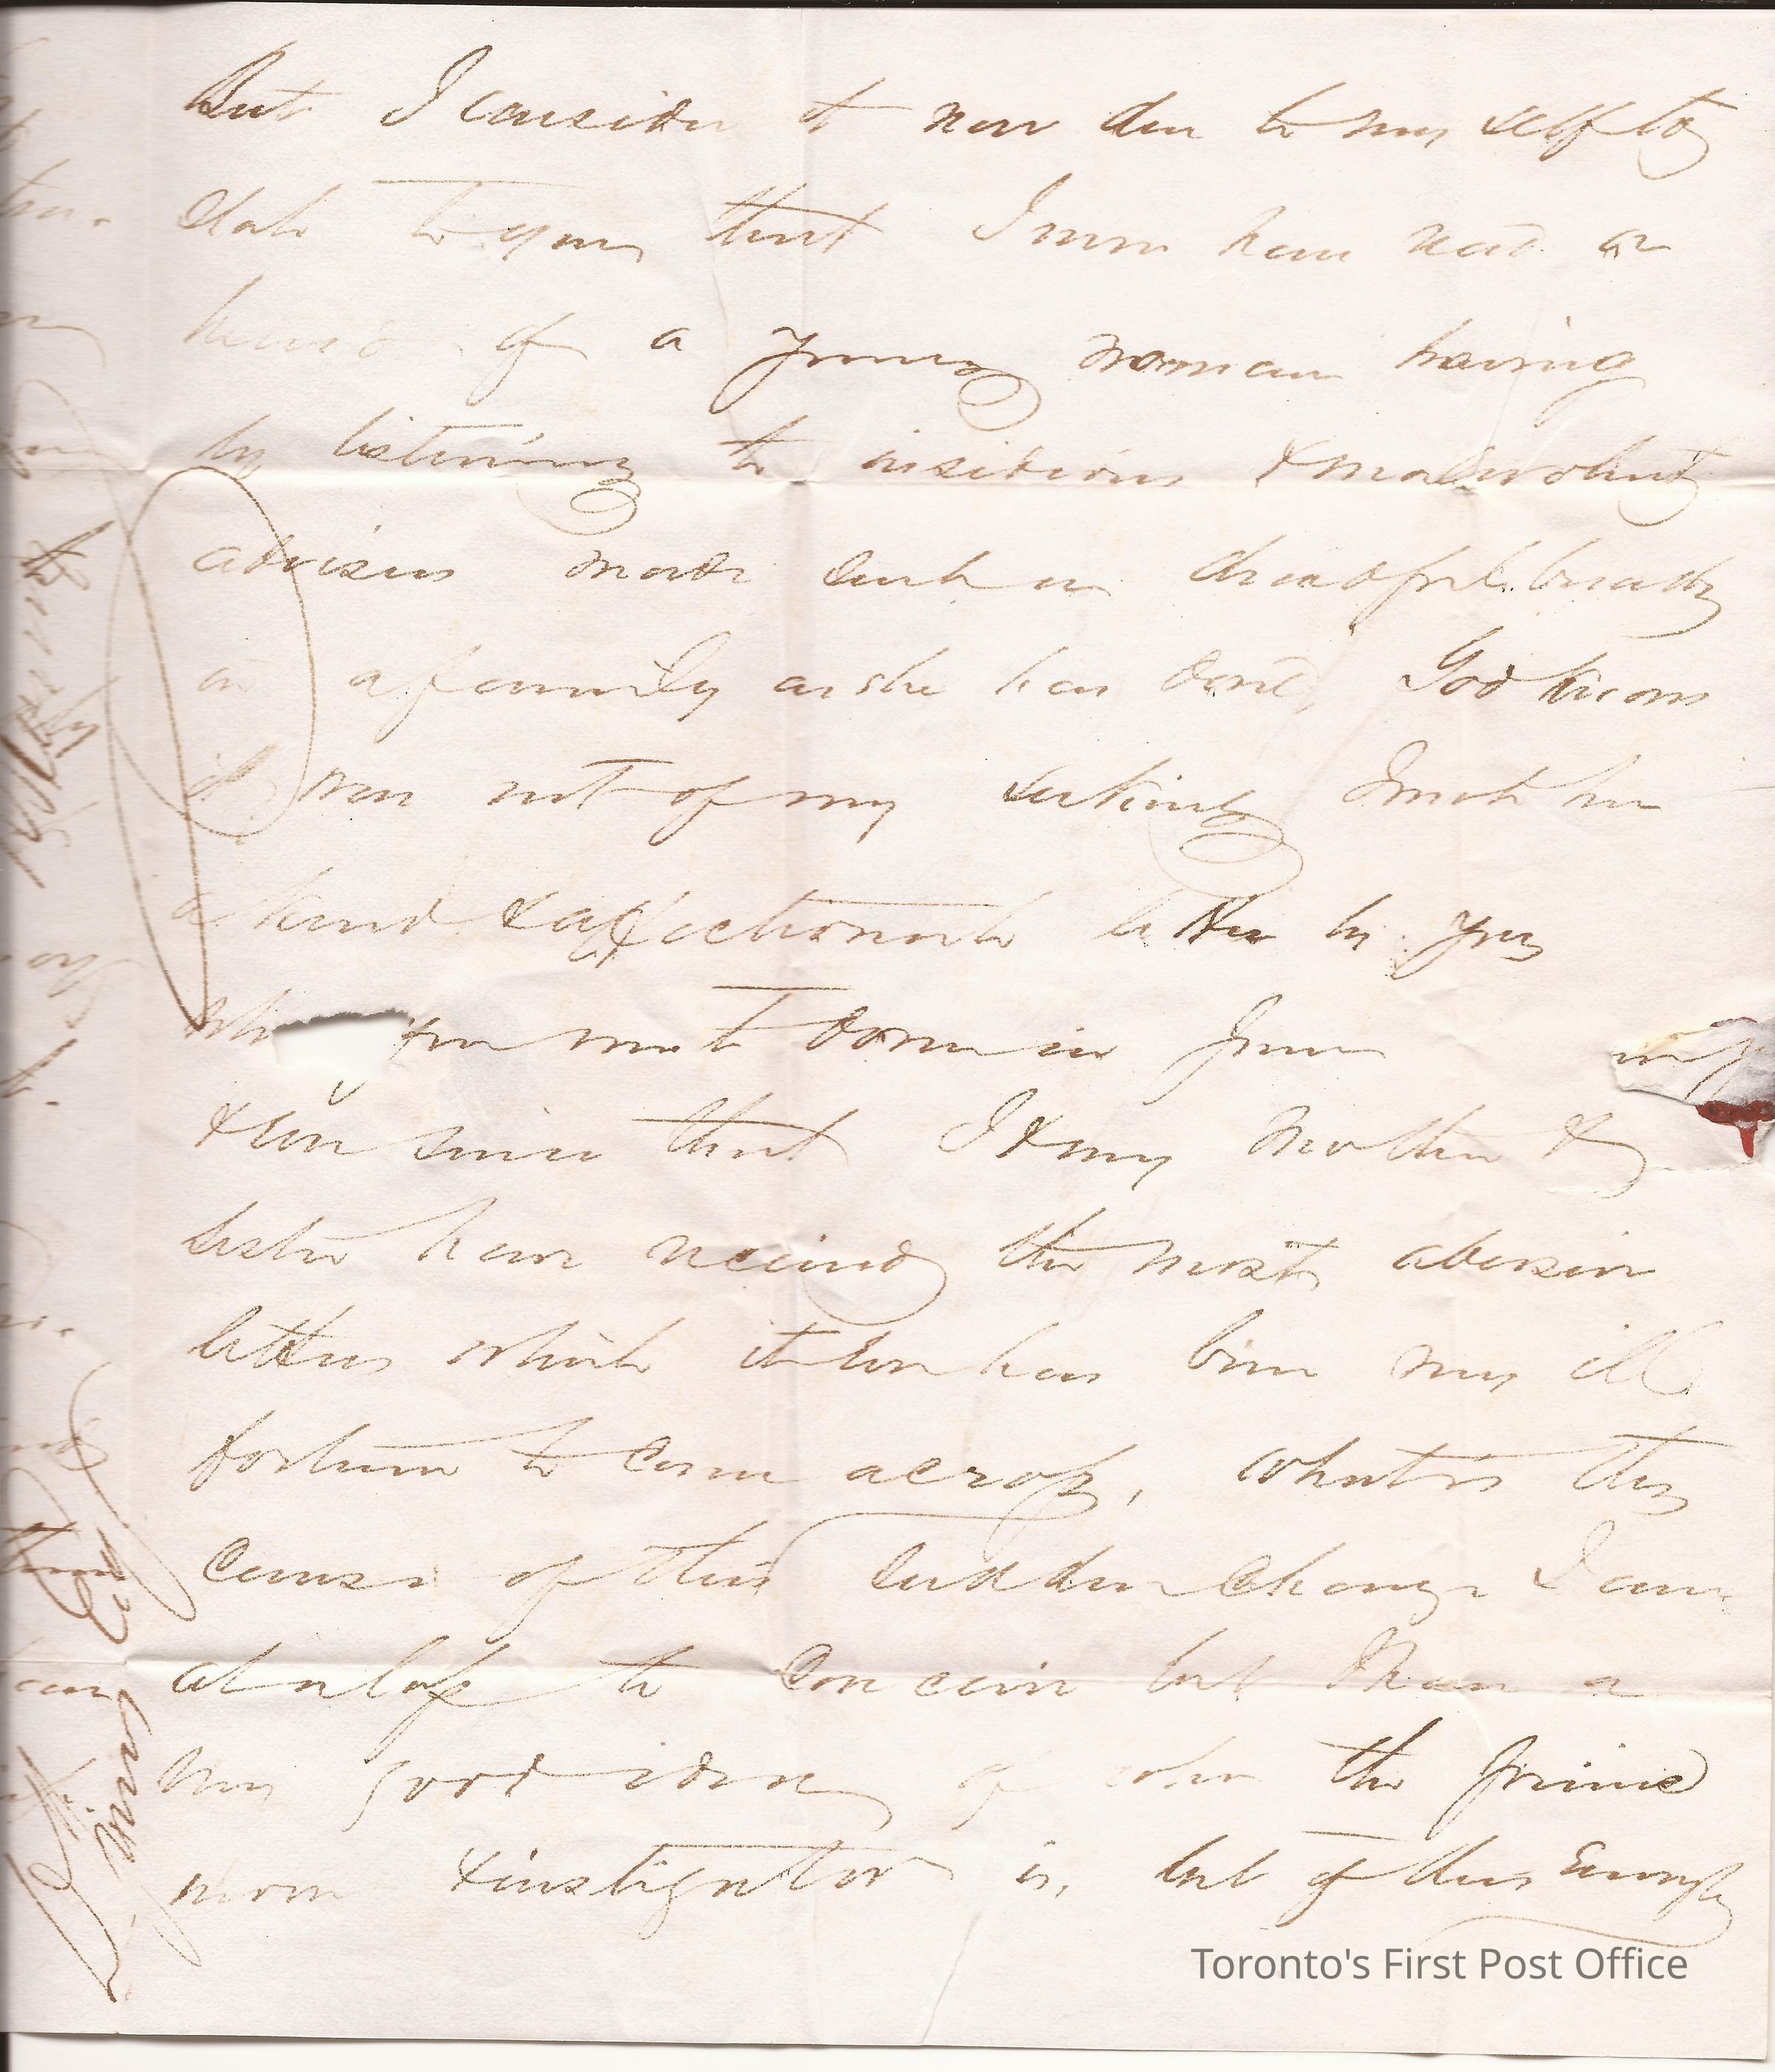 But I consider it now due to my self to
state to you that I never have read or
heard of a young woman having
by listening to insidious & malevolent
advisers made such a dreadful breach
in a family as she has done, God knows
it was not of my seeking I wrote her
a kind & affectionate letter by you
when you went down in June
& ever since that I & my Mother &
sister have received the most abusive
letters which it ever has been my ill
fortune to come across, what is the
cause of this sudden change I am
at a loss to conceive but I have a
very good idea of who the prime
mover & instigator is, but of this enough
Toronto's First Post Office